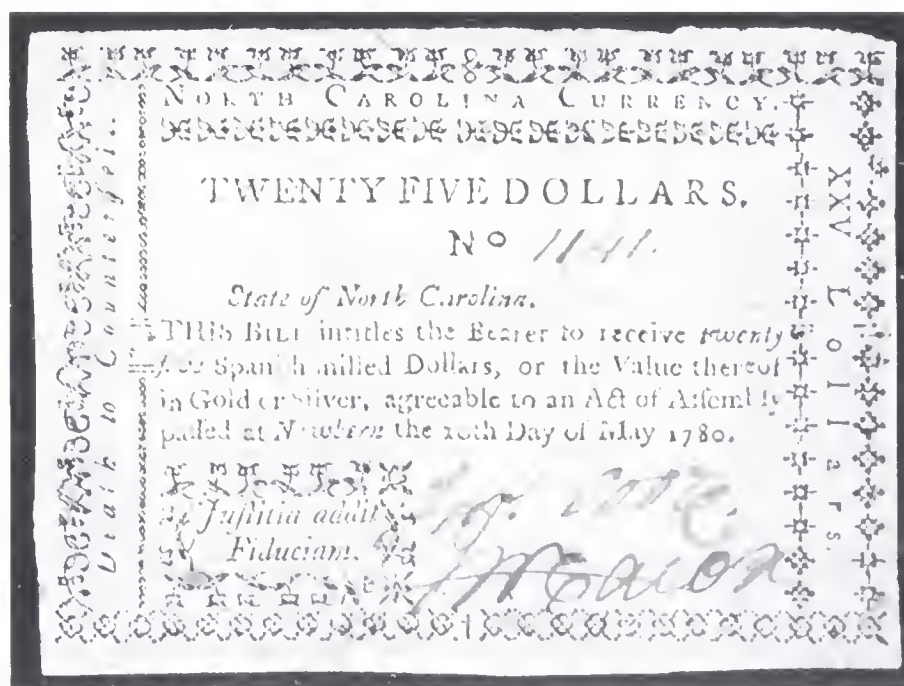 NORTH CAROLINA CURRENCY.
TWENTY FIVE DOLLARS.
No 1141.
State of North Carolina.
THIS BILL intitles the Bearer to receive twenty
five Spanish milled Dollars, or the Value thereof
in Gold or Silver, agreeable to an Act of Aſſembly
paſſed at Newbern the 10th Day of May 1780.
Juſtitia addit
Fiduciam.
Death to Counterfeit.
XXV Dollars.